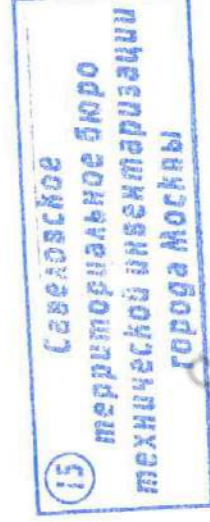 15
Савеловское
территориальное бюро
технической инвентаризации
города Москвы